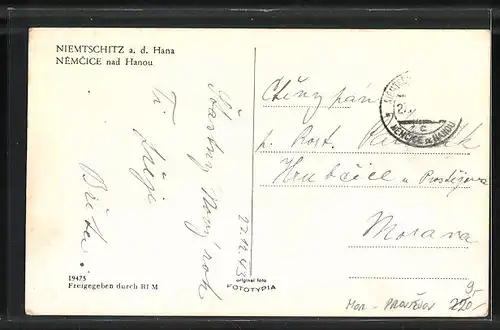 NIEMTSCHITZ a. d. Hana
NĚMČICE nad Hanou
Šťastný Nový rok
Ti přeje
22.12.43
19475
Freigegeben durch RLM
original foto
FOTOTYPIA
Ctěný pán
p. Rost.
Hrubčice u Prostějova
Morava
NĚMČICE n. HANOU
9-
220/